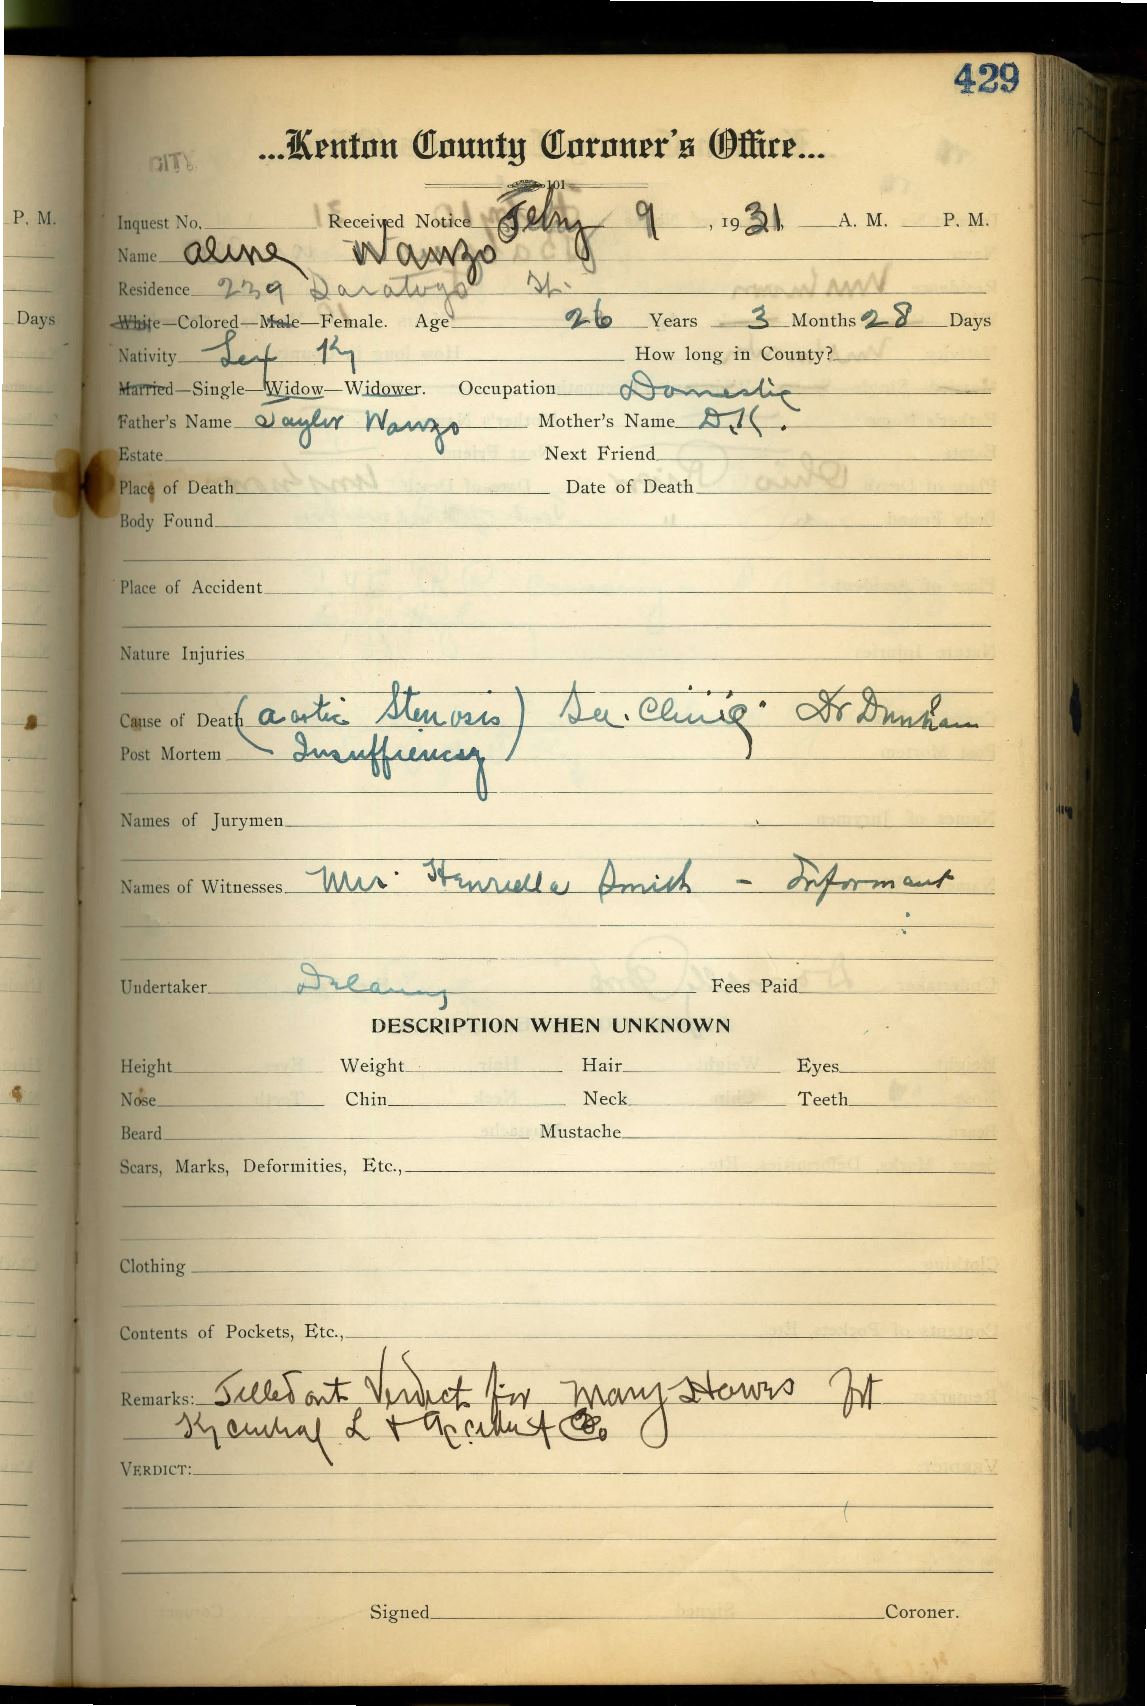 429
...Kenton County Coroner's Office...
101
P. M.
Inquest No. Received Notice Feby 9, 1931, A. M. P. M.
Name Aline Wanzo
Residence 239 Saratoga St.
Days
White—Colored—Male—Female. Age 26 Years 3 Months 28 Days
Nativity Lex Ky How long in County?
Married—Single—Widow—Widower. Occupation Domestic
Father's Name Taylor Wanzo Mother's Name D.K.
Estate Next Friend
Place of Death Date of Death
Body Found
Place of Accident
Nature Injuries
Cause of Death (Aortic Stenosis) Clinic Dr Dunham
Post Mortem Insuffiency
Names of Jurymen
Names of Witnesses Mrs. Henrietta Smith - Informant
Undertaker Delaney Fees Paid
DESCRIPTION WHEN UNKNOWN
Height Weight Hair Eyes
Nose Chin Neck Teeth
Beard Mustache
Scars, Marks, Deformities, Etc.,
Clothing
Contents of Pockets, Etc.,
Remarks: Filled out Verdict for Mary Hawes
Ky Central L & Accident Co.
VERDICT:
Signed Coroner.